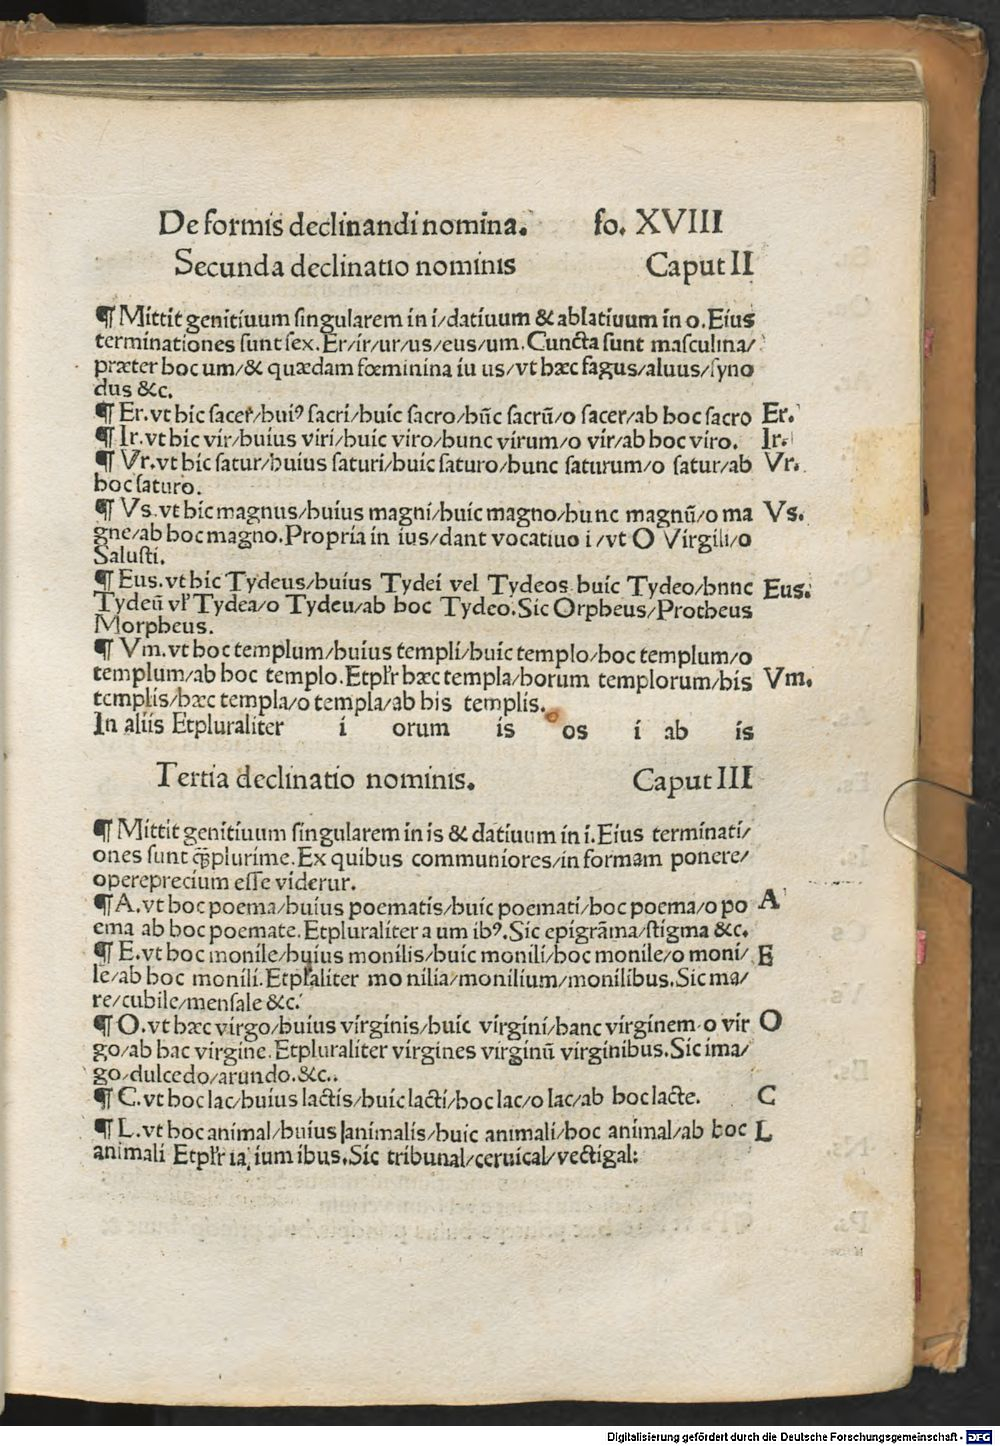 De formis declinandi nomina. fo. XVIII
Secunda declinatio nominis Caput II
¶ Mittit genitiuum singularem in i/datiuum & ablatiuum in o. Eius
terminationes sunt sex. Er/ir/ur/us/eus/um. Cuncta sunt masculina/
præter hoc um/& quædam fœminina iu us/vt hæc fagus/aluus/syno
dus &c.
¶ Er. vt hic sacer/huiꝰ sacri/huic sacro/hūc sacrū/o sacer/ab hoc sacro Er.
¶ Ir. vt hic vir/huius viri/huic viro/hunc virum/o vir/ab hoc viro. Ir.
¶ Vr. vt hic satur/huius saturi/huic saturo/hunc saturum/o satur/ab Vr.
hoc saturo.
¶ Vs. vt hic magnus/huius magni/huic magno/hunc magnū/o ma Vs.
gne/ab hoc magno. Propria in ius/dant vocatiuo i/vt O Virgili/o
Salusti.
¶ Eus. vt hic Tydeus/huius Tydei vel Tydeos huic Tydeo/hnnc Eus.
Tydeū vl' Tydea/o Tydeu/ab hoc Tydeo. Sic Orpheus/Protheus
Morpheus.
¶ Vm. vt hoc templum/huius templi/huic templo/hoc templum/o
templum/ab hoc templo. Etpl'r hæc templa/horum templorum/his Vm.
templis/hæc templa/o templa/ab his templis.
In aliis Etpluraliter i orum is os i ab is
Tertia declinatio nominis. Caput III
¶ Mittit genitiuum singularem in is & datiuum in i. Eius terminati/
ones sunt ꝙ̄plurime. Ex quibus communiores/in formam ponere/
opereprecium esse viderur.
¶ A. vt hoc poema/huius poematis/huic poemati/hoc poema/o po A
ema ab hoc poemate. Etpluraliter a um ibꝰ. Sic epigrāma/stigma &c.
¶ E. vt hoc monile/huius monilis/huic monili/hoc monile/o moni/ E
le/ab hoc monili. Etpl'aliter monilia/monilium/monilibus. Sic ma/
re/cubile/mensale &c.
¶ O. vt hæc virgo/huius virginis/huic virgini/hanc virginem o vir O
go/ab hac virgine. Etpluraliter virgines virginū virginibus. Sic ima/
go/dulcedo/arundo. &c..
¶ C. vt hoc lac/huius lactis/huic lacti/hoc lac/o lac/ab hoc lacte. C
¶ L. vt hoc animal/huius animalis/huic animali/hoc animal/ab hoc L
animali Etpl'r ia, ium ibus. Sic tribunal/ceruical/vectigal:
Digitalisierung gefördert durch die Deutsche Forschungsgemeinschaft - DFG